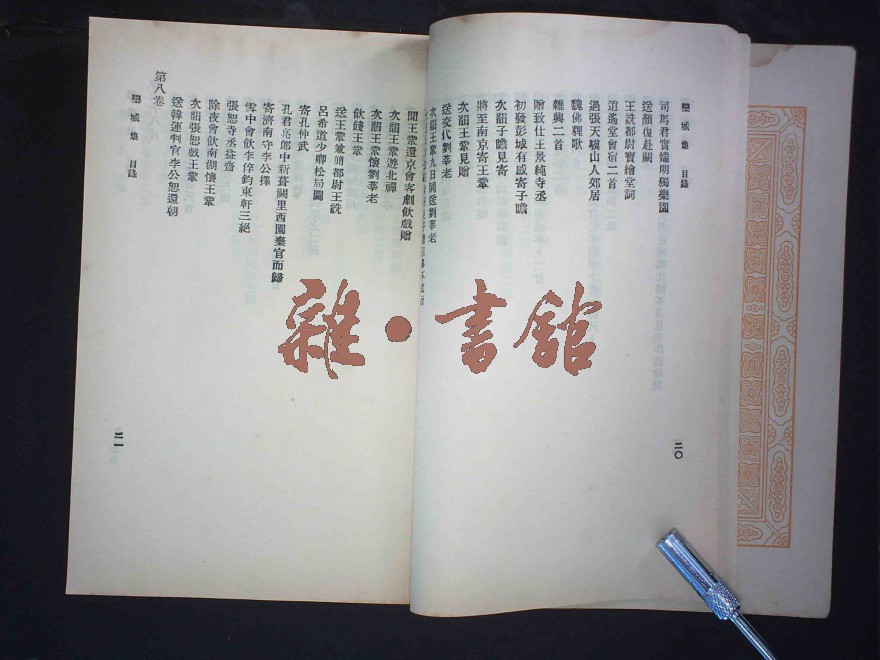 欒城集 目錄
司馬君實端明獨樂園
送顏復赴闕
王詵都尉寶繪堂詞
逍遙堂會宿二首
過張天驥山人郊居
魏佛貍歌
雜興二首
贈致仕王景純寺丞
初發彭城有感寄子瞻
次韻子瞻見寄
將至南京寄王鞏
次韻王鞏見贈
送交代劉莘老
次韻王鞏九日同送劉莘老
二〇
聞王鞏還京會客劇飲戲贈
次韻王鞏遊北禪
次韻王鞏懷劉莘老
飲餞王鞏
送王鞏兼簡都尉王詵
呂希道少卿松局圖
寄孔仲武
孔君亮郎中新葺闕里西園棄官而歸
寄濟南守李公擇
雪中會飲李倅鈞東軒三絕
張恕寺丞益齋
除夜會飲南湖懷王鞏
次韻張恕戲王鞏
送韓運判官李公恕還朝
第八卷
欒城集 目錄
二一
雜·書館